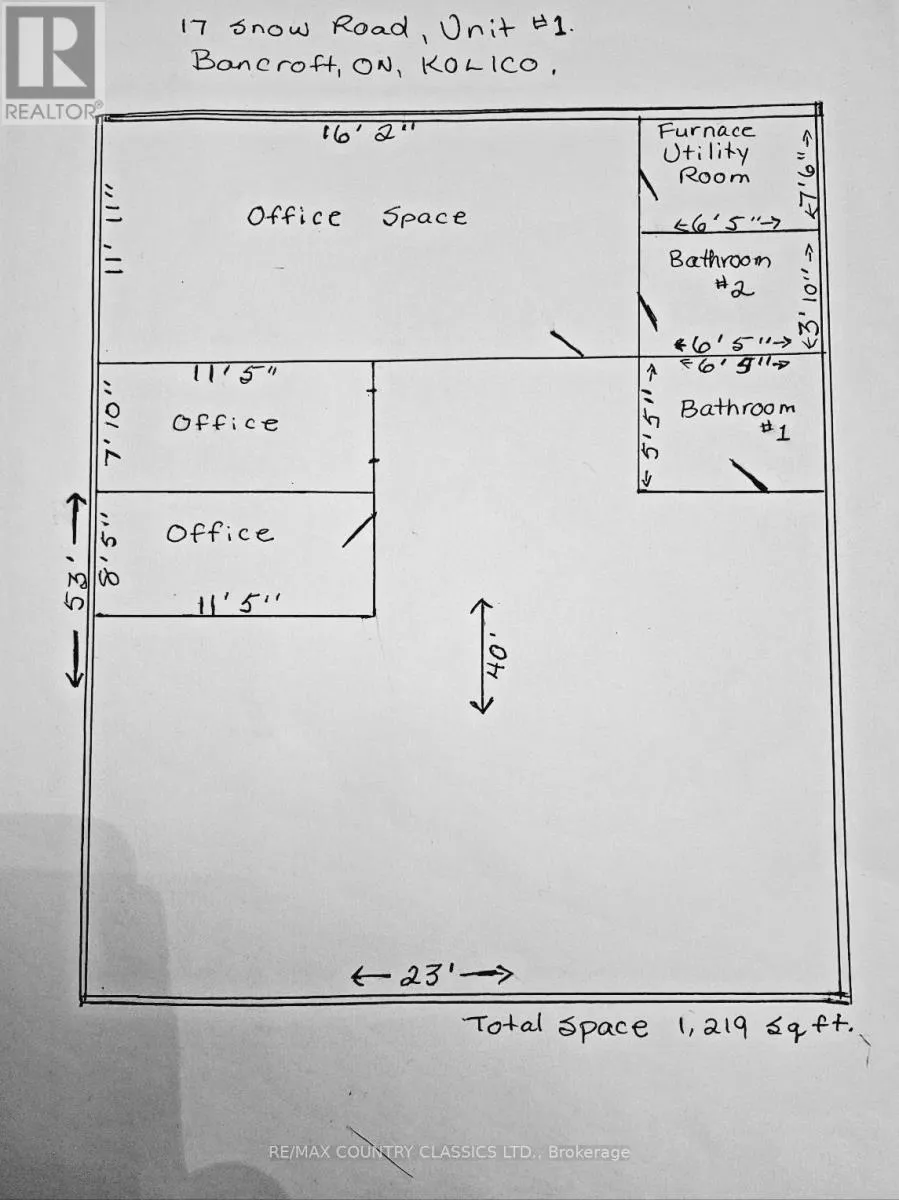 17 Snow Road, Unit #1.
Bancroft, ON, K0L1C0.
REALTOR®
16' 2"
Furnace
Utility
Room
7'6"
11' 11"
Office Space
6' 5"
Bathroom
#2
3' 10"
6' 5"
11' 5"
6' 5"
7' 10"
Office
5' 5"
Bathroom
#1
8' 5"
Office
53'
11' 5"
40'
23'
Total Space 1,219 sqft.
RE/MAX COUNTRY CLASSICS LTD., Brokerage